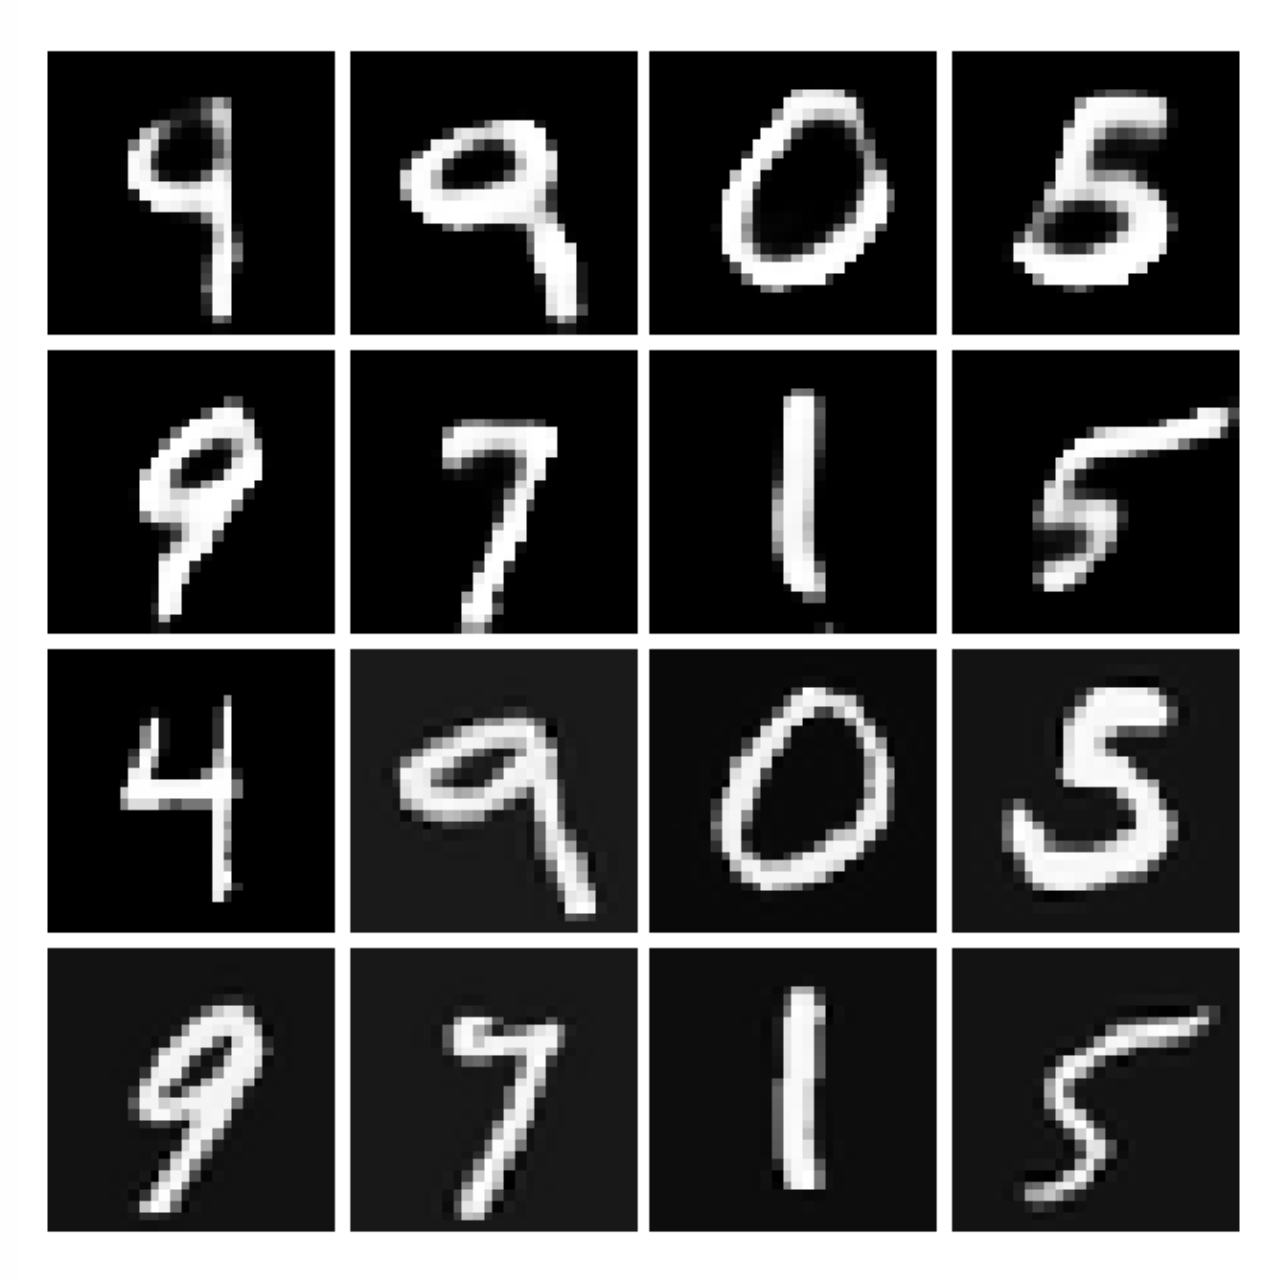 9 9 0 5
9 7 1 5
4 9 0 5
9 7 1 5